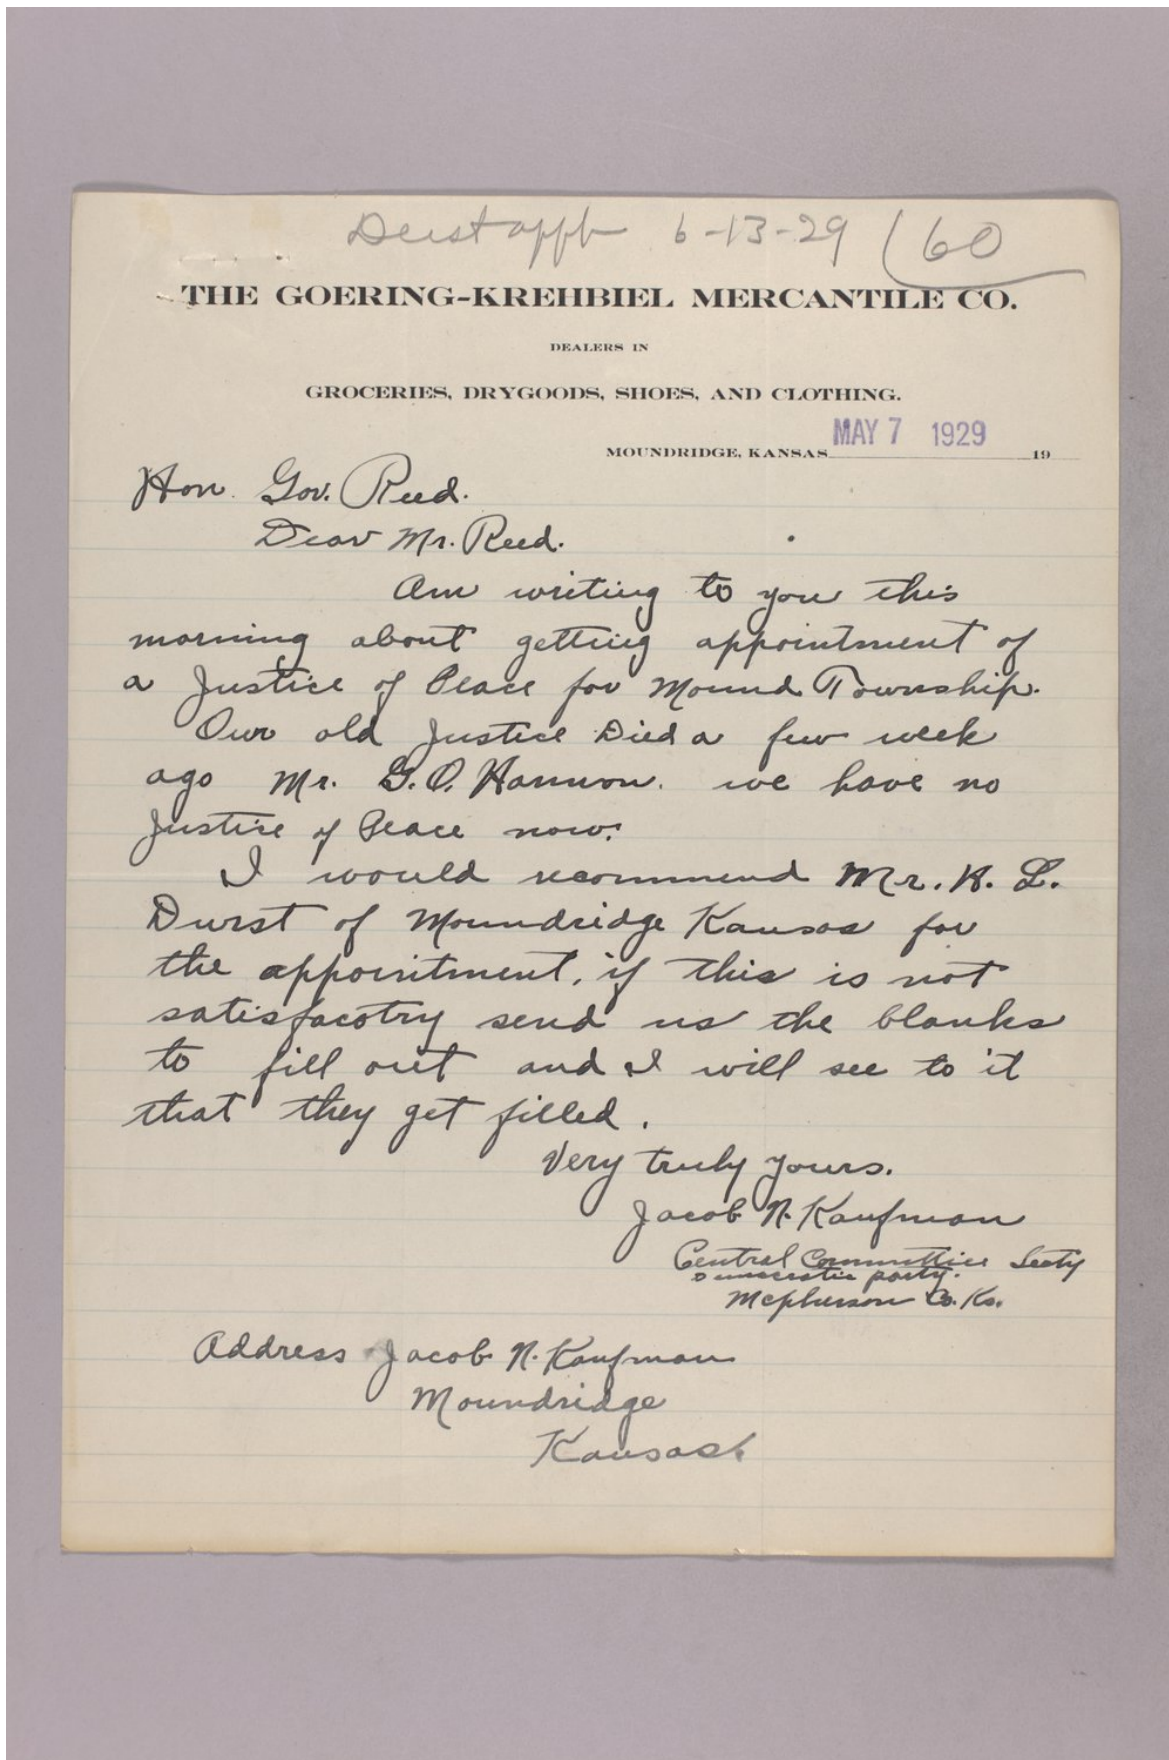 Durst appt 6-13-29 (60
THE GOERING-KREHBIEL MERCANTILE CO.
DEALERS IN
GROCERIES, DRYGOODS, SHOES, AND CLOTHING.
MOUNDRIDGE, KANSAS MAY 7 1929 19
Hon. Gov. Reed.
Dear Mr. Reed.
Am writing to you this
morning about getting appointment of
a Justice of Peace for Mound Township.
Our old Justice Died a few week
ago Mr. G. O. we have no
Justice of Peace now.
I would recommend Mr. H. L.
Durst of Moundridge Kansas for
the appointment, if this is not
satisfacotry send us the blanks
to fill out and I will see to it
that they get filled.
Very truly yours.
Jacob N. Kaufman
Central Committiee Secty
Democratic party.
Mcpherson Co. Ks.
Address Jacob N. Kaufman
Moundridge
Kansas